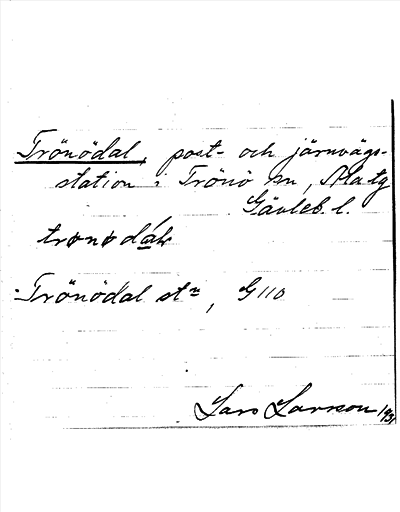 Trönödal, post- och järnvägs-
station i Trönö sn, Ala tg
Gävleb. l.
Trönödal stn, G110
Lars Larsson 1931